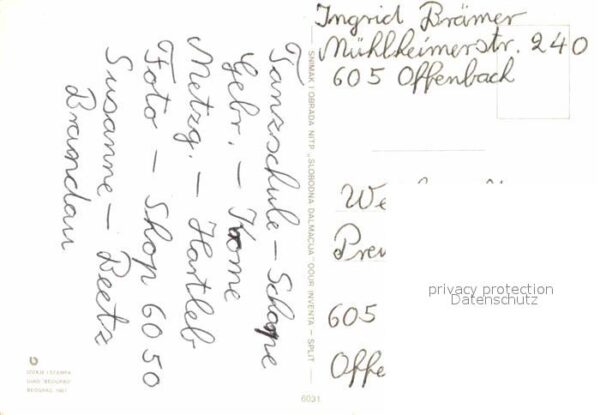 Ingrid Brämer
Mühlheimerstr. 240
605 Offenbach
Tanzschule – Schöne
Gebr. – Krome
Metzg. – Hartleb
Foto – Shop 6050
Susanne – Beetz
Brandau
SNIMAK I OBRADA NITP „SLOBODNA DALMACIJA" OOUR INVENTA – SPLIT
We
605
Offe
privacy protection
Datenschutz
6031